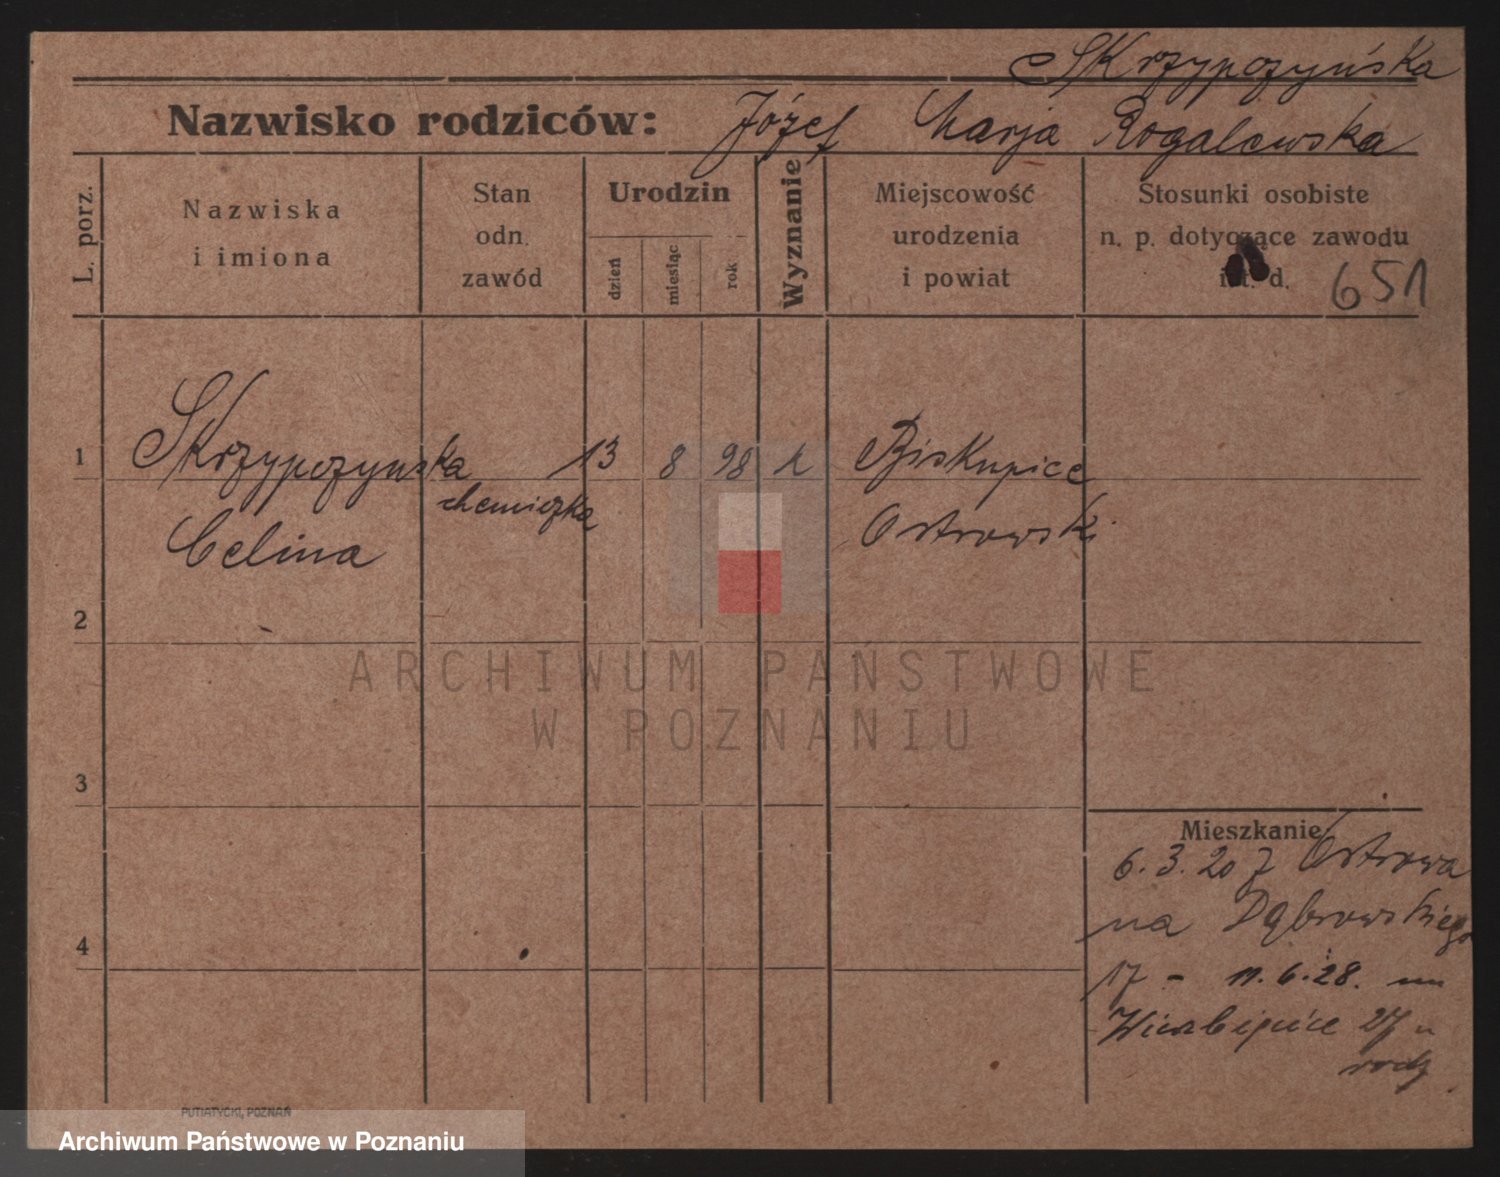 Skrzypczyńska
Nazwisko rodziców: Józef Marja Rogalewska
L. porz.
Nazwiska
i imiona
Stan
odn.
zawód
Urodzin
dzień
miesiąc
rok
Wyznanie
Miejscowość
urodzenia
i powiat
Stosunki osobiste
n. p. dotyczące zawodu
i t. d.
651
1 Skrzypczynska 13 8 98 k Biskupice
chemiczka
Celina Ostrowski
2
3
4
ARCHIWUM PAŃSTWOWE
W POZNANIU
Mieszkanie
6.3.20 z Ostrowa
na Dąbrowskiego
17 - 11.6.28. na
Wierzbięcice 27 u
rodz.
PUTIATYCKI, POZNAŃ
Archiwum Państwowe w Poznaniu